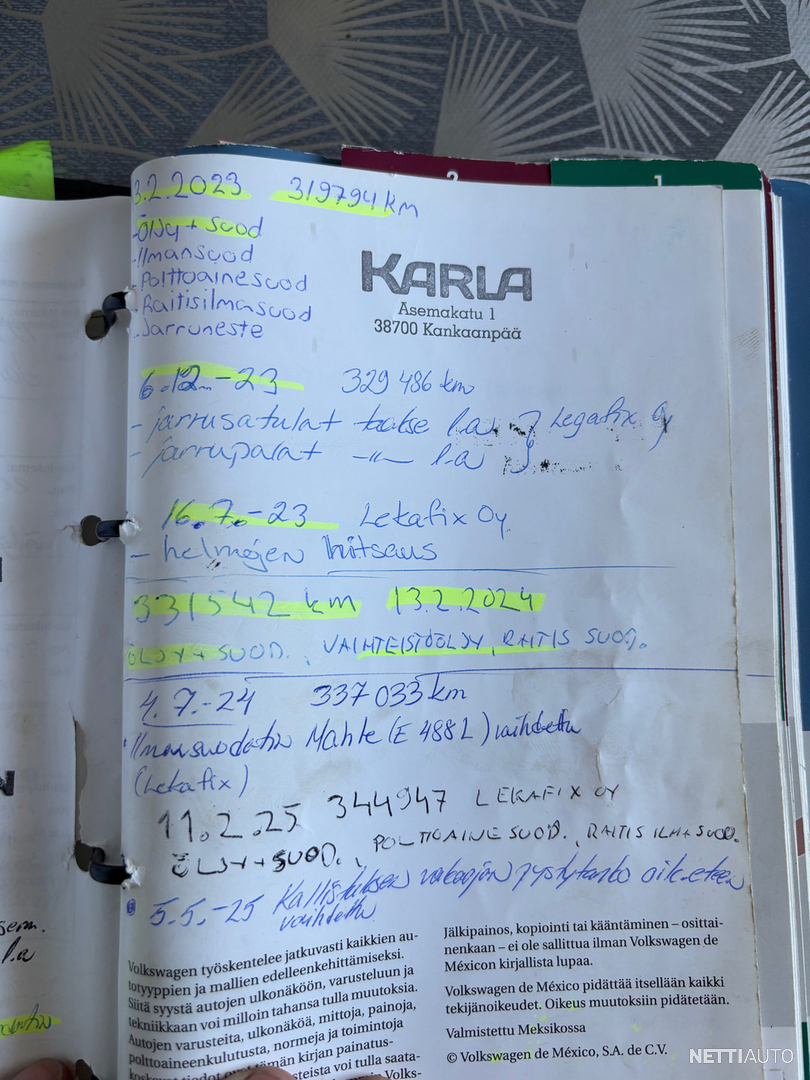 2
1
3.2.2023 319794 km
-Öljy + suod
-Ilmansuod
-Polttoainesuod
-Raitisilmasuod
-Jarruneste
KARLA
Asemakatu 1
38700 Kankaanpää
6.12.-23 329 486 km
- jarrusatulat takse l.a } Legafix Oy
- jarrupalat -"- l.a
16.7.-23 Lekafix Oy
- helmojen hitsaus
331542 km 13.2.2024
ÖLJY+SUOD., VAIHTEISTOÖLJY, RAITIS SUOD.
4.7.-24 337 033 km
Ilmansuodatin Mahle (E 488 L) vaihdettu
(Lekafix)
11.2.25 344947 LEKAFIX OY
ÖLJY+SUOD., POLTTOAINE SUOD., RAITIS ILMASUOD.
5.5.-25 Kallistuksen vakaajan pystytanko oik.eteen
vaihdettu
l.a
Volkswagen työskentelee jatkuvasti kaikkien au-
totyyppien ja mallien edelleenkehittämiseksi.
Siitä syystä autojen ulkonäköön, varusteluun ja
tekniikkaan voi milloin tahansa tulla muutoksia.
Autojen varusteita, ulkonäköä, mittoja, painoja,
polttoaineenkulutusta, normeja ja toimintoja
tämän kirjan painatus-
Volks-
Jälkipainos, kopiointi tai kääntäminen – osittai-
nenkaan – ei ole sallittua ilman Volkswagen de
Méxicon kirjallista lupaa.
Volkswagen de México pidättää itsellään kaikki
tekijänoikeudet. Oikeus muutoksiin pidätetään.
Valmistettu Meksikossa
© Volkswagen de México, S.A. de C.V.
NETTIAUTO